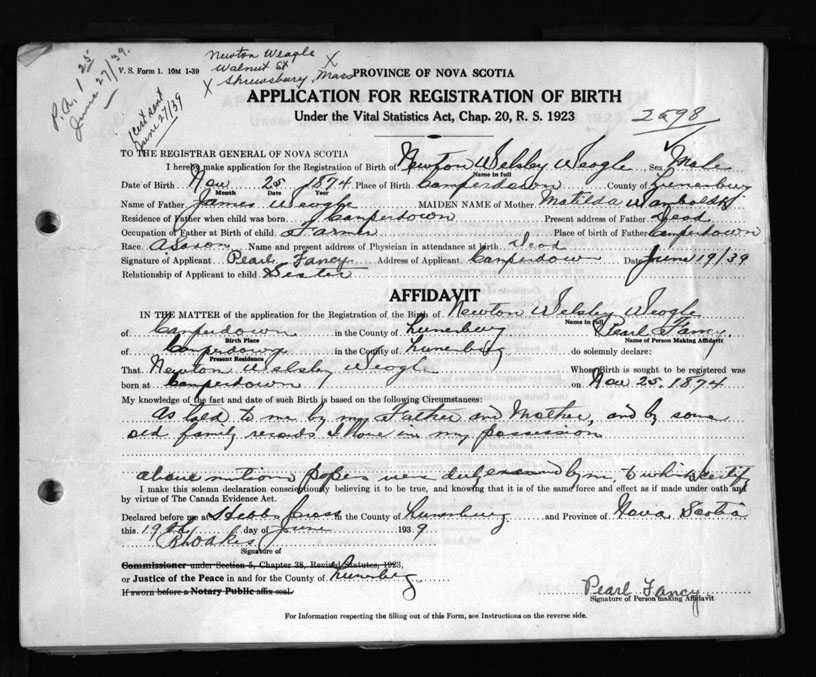 P.A. 1 25
June 27/39.
V. S. Form 1. 10M 1-39
Newton Weagle X
Walnut St
X Shrewsbury, Mass
Cert sent
June 27/39
PROVINCE OF NOVA SCOTIA
APPLICATION FOR REGISTRATION OF BIRTH
Under the Vital Statistics Act, Chap. 20, R. S. 1923
2598
TO THE REGISTRAR GENERAL OF NOVA SCOTIA
I hereby make application for the Registration of Birth of Newton Welsley Weagle Sex Male
Name in full
Date of Birth Nov 25 1874 Place of Birth Camperdown County of Lunenburg
Month Date Year
Name of Father James Weagle MAIDEN NAME of Mother Matilda
Residence of Father when child was born Camperdown Present address of Father Dead
Occupation of Father at Birth of child Farmer Place of Birth of Father Camperdown
Race Name and present address of Physician in attendance at birth Dead
Signature of Applicant Pearl Fancy Address of Applicant Camperdown Date June 19/39
Relationship of Applicant to child Sister
AFFIDAVIT
IN THE MATTER of the application for the Registration of the Birth of Newton Welsley Weagle
Name in full
of Camperdown in the County of Lunenburg Pearl Fancy
Birth Place Name of Person Making Affidavit
of Camperdown in the County of Lunenburg do solemnly declare:
Present Residence
That Newton Welsley Weagle Whose Birth is sought to be registered was
born at Camperdown on Nov 25. 1874
My knowledge of the fact and date of such Birth is based on the following Circumstances:
As told to me by my Father and Mother, and by some
old family records I have in my possession
above mention papers were duly by me, to which I certify
I make this solemn declaration conscientiously believing it to be true, and knowing that it is of the same force and effect as if made under oath and
by virtue of The Canada Evidence Act.
Declared before me at Hebbs Cross in the County of Lunenburg and Province of Nova Scotia
this 19th day of June 1939
Signature of
Commissioner under Section 5, Chapter 38, Revised Statutes, 1923,
or Justice of the Peace in and for the County of Lunenburg
If sworn before a Notary Public affix seal.
Pearl Fancy
Signature of Person making Affidavit
For Information respecting the filling out of this Form, see Instructions on the reverse side.